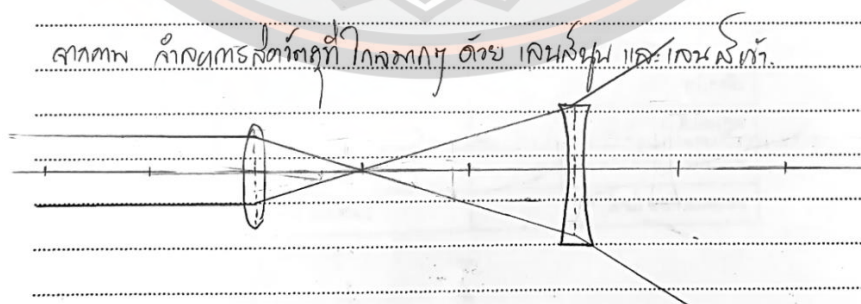 จากภาพ กำลังการส่องวัตถุที่ ไกลมากๆ ด้วย เลนส์นูน และ เลนส์เว้า.